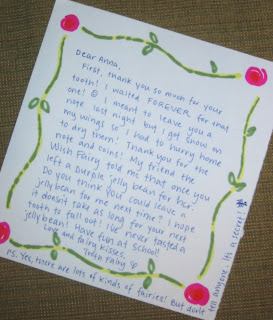 Dear Anna,
First, thank you so much for your
tooth! I waited FOREVER for that
one! ☺ I meant to leave you a
note last night but I got snow on
my wings so I had to hurry home
to dry them! Thank you for the
note and coins! My friend the
Wish Fairy told me that once you
left a purple jelly bean for her.
Do you think you could leave a
jellybean for me next time? I hope
it doesn't take as long for your next
tooth to fall out! I've never tasted a
jelly bean! Have fun at school!
Love and fairy kisses,
Tooth Fairy
P.S. Yes, there are lots of kinds of fairies! But don't
tell anyone. It's a secret!